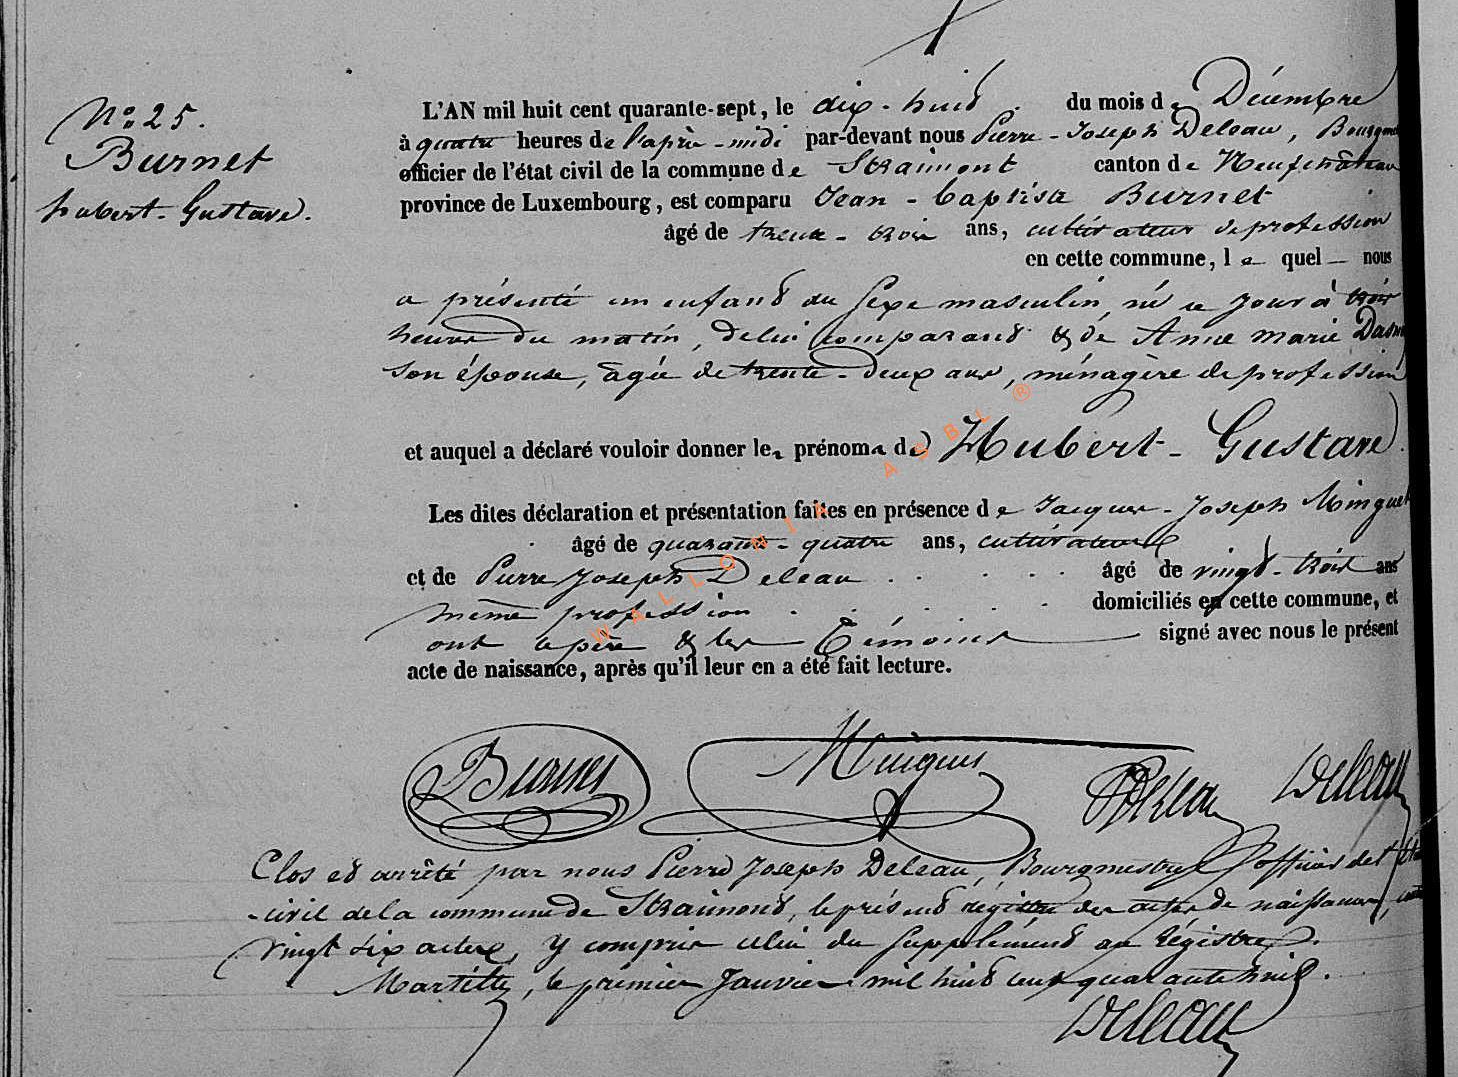 N° 25.
Burnet
hubert-Gustave.
L'AN mil huit cent quarante-sept, le dix-huit du mois de Décembre
à quatre heures de l'après-midi par-devant nous Pierre-Joseph Deleau, Bourgme
officier de l'état civil de la commune de Straimont canton de Neufchâteau
province de Luxembourg, est comparu Jean-baptiste Burnet
âgé de trente-trois ans, cultivateur de profession
en cette commune, le quel nous
a présenté un enfant du sexe masculin, né ce jour à trois
heures du matin, de lui comparant & de Anne marie
son épouse, âgée de trente-deux ans, ménagère de profession
et auquel a déclaré vouloir donner les prénoms de Hubert-Gustave.
Les dites déclaration et présentation faites en présence de Jacques-Joseph Minguet
âgé de quarante-quatre ans, cultivateur
et de Pierre Joseph Deleau . . . . . âgé de vingt-trois ans
même profession . . . . . domiciliés en cette commune, et
ont le père & les témoins signé avec nous le présent
acte de naissance, après qu'il leur en a été fait lecture.
WALLONIA ASBL ®
Burnet Minguet PJDeleau Deleau
Clos et arrêté par nous Pierre Joseph Deleau, Bourgmestre officier de l'état
-civil de la commune de Straimont, le présent régistre des actes de naissances,
vingt six actes, y compris celui du supplément au régistre.
Martilly, le premier Janvier mil huit cent quarante huit.
Deleau